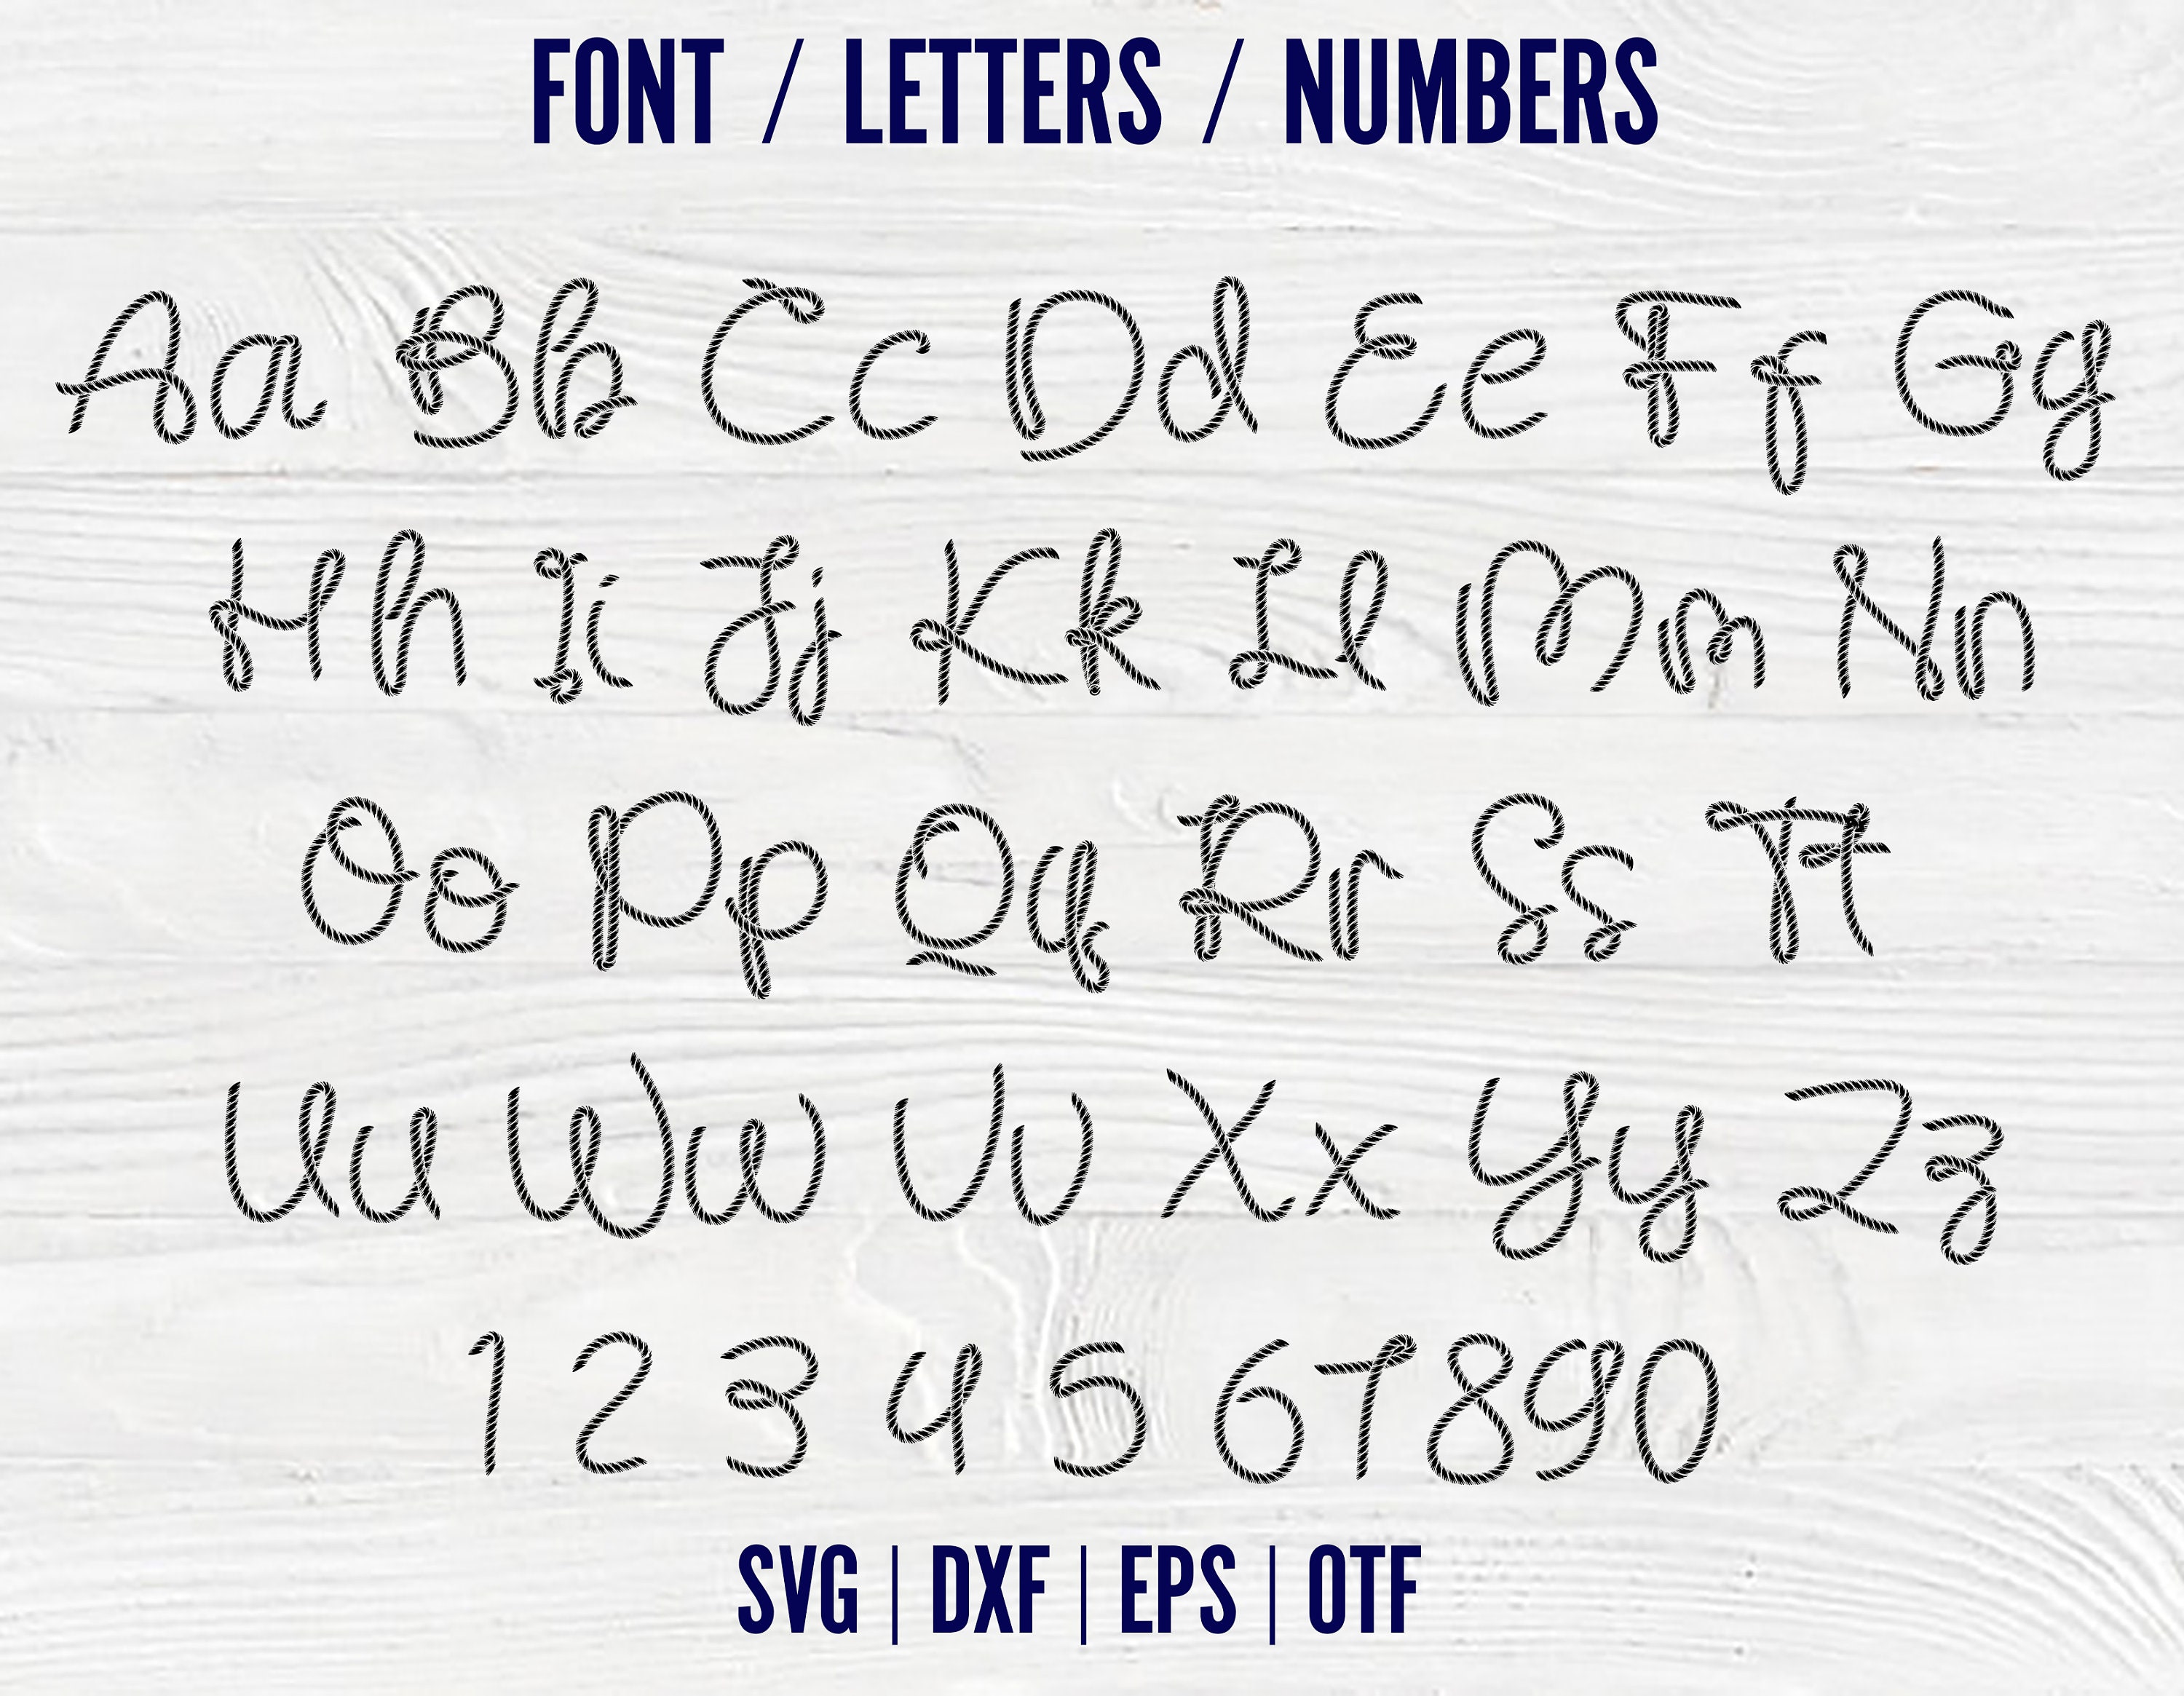 FONT / LETTERS / NUMBERS
Aa Bb Cc Dd Ee Ff Gg
Hh Ii Jj Kk Ll Mm Nn
Oo Pp Qq Rr Ss Tt
Uu Ww Vv Xx Yy Zz
1 2 3 4 5 6 7 8 9 0
SVG | DXF | EPS | OTF